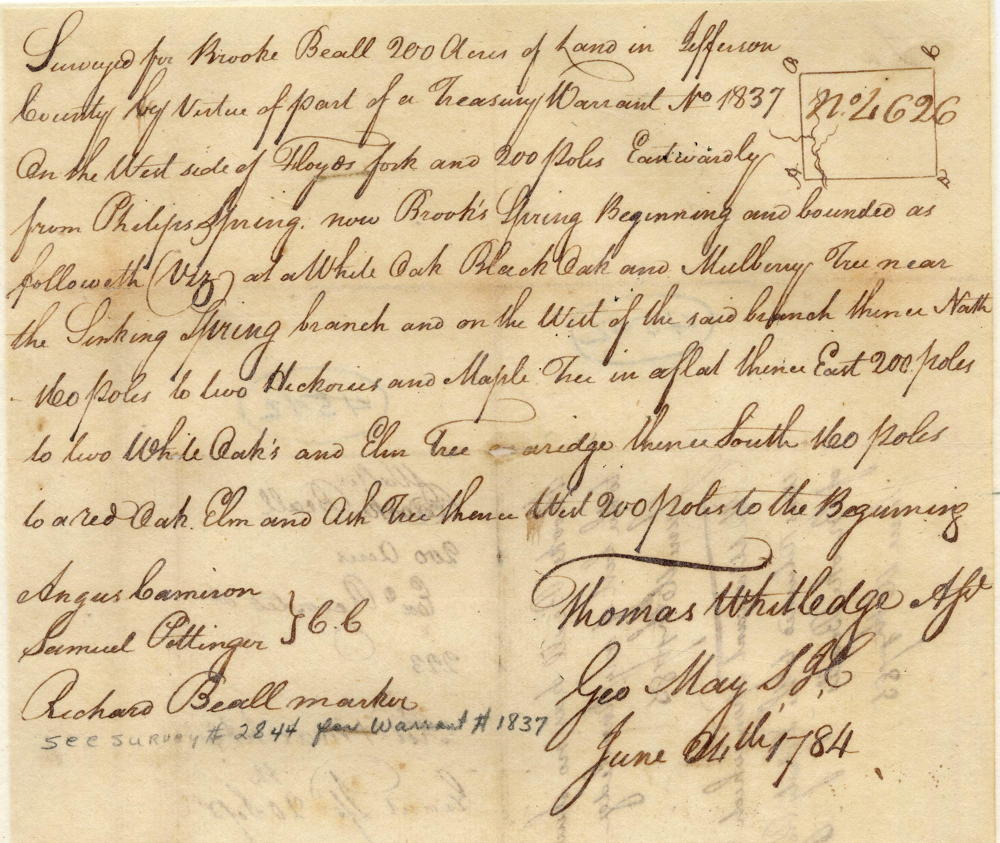 Surveyed for Brooke Beall 200 Acres of Land in Jefferson
County by Virtue of part of a Treasury Warrant No 1837
On the West side of Floyds fork and 200 poles Eastwardly
from Philips Spring. now Brook's Spring Beginning and bounded as
followeth (Viz) at a White Oak Black Oak and Mulberry Tree near
the Sinking Spring branch and on the West of the said branch thence North
160 poles to two Hickories and Maple Tree in a flat thence East 200 poles
to two White Oak's and Elm Tree aridge thence South 160 poles
to a red Oak. Elm and Ash Tree thence West 200 poles to the Beginning
B C
No 4626
A D
Angus Camiron
Samuel Pottinger } C C
Richard Beall marker
Thomas Whitledge Ast
Geo May S J C
June 1784
SEE SURVEY # 2844 for Warrant # 1837
200 Acres